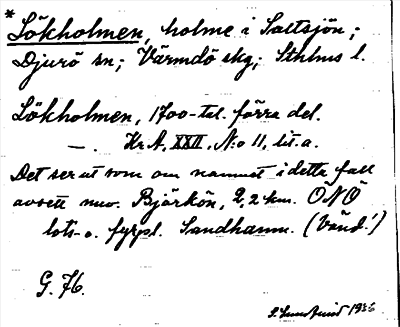 *Lökholmen, holme i Saltsjön;
Djurö sn; Värmdö skg; Sthlms l.
Lökholmen, 1700-tal. förra del.
—. Kr. A. XXII. N:o 11, lit. a.
Det ser ut som om namnet i detta fall
avsett nuv. Björkön, 2,2 km. ONO
lots- o. fyrpl. Sandhamn. (Vänd!)
G. 76.
1936